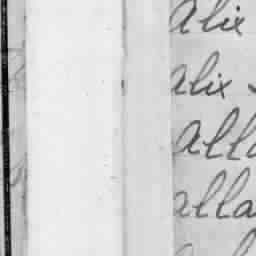 Alix
Alix
Alla
alla